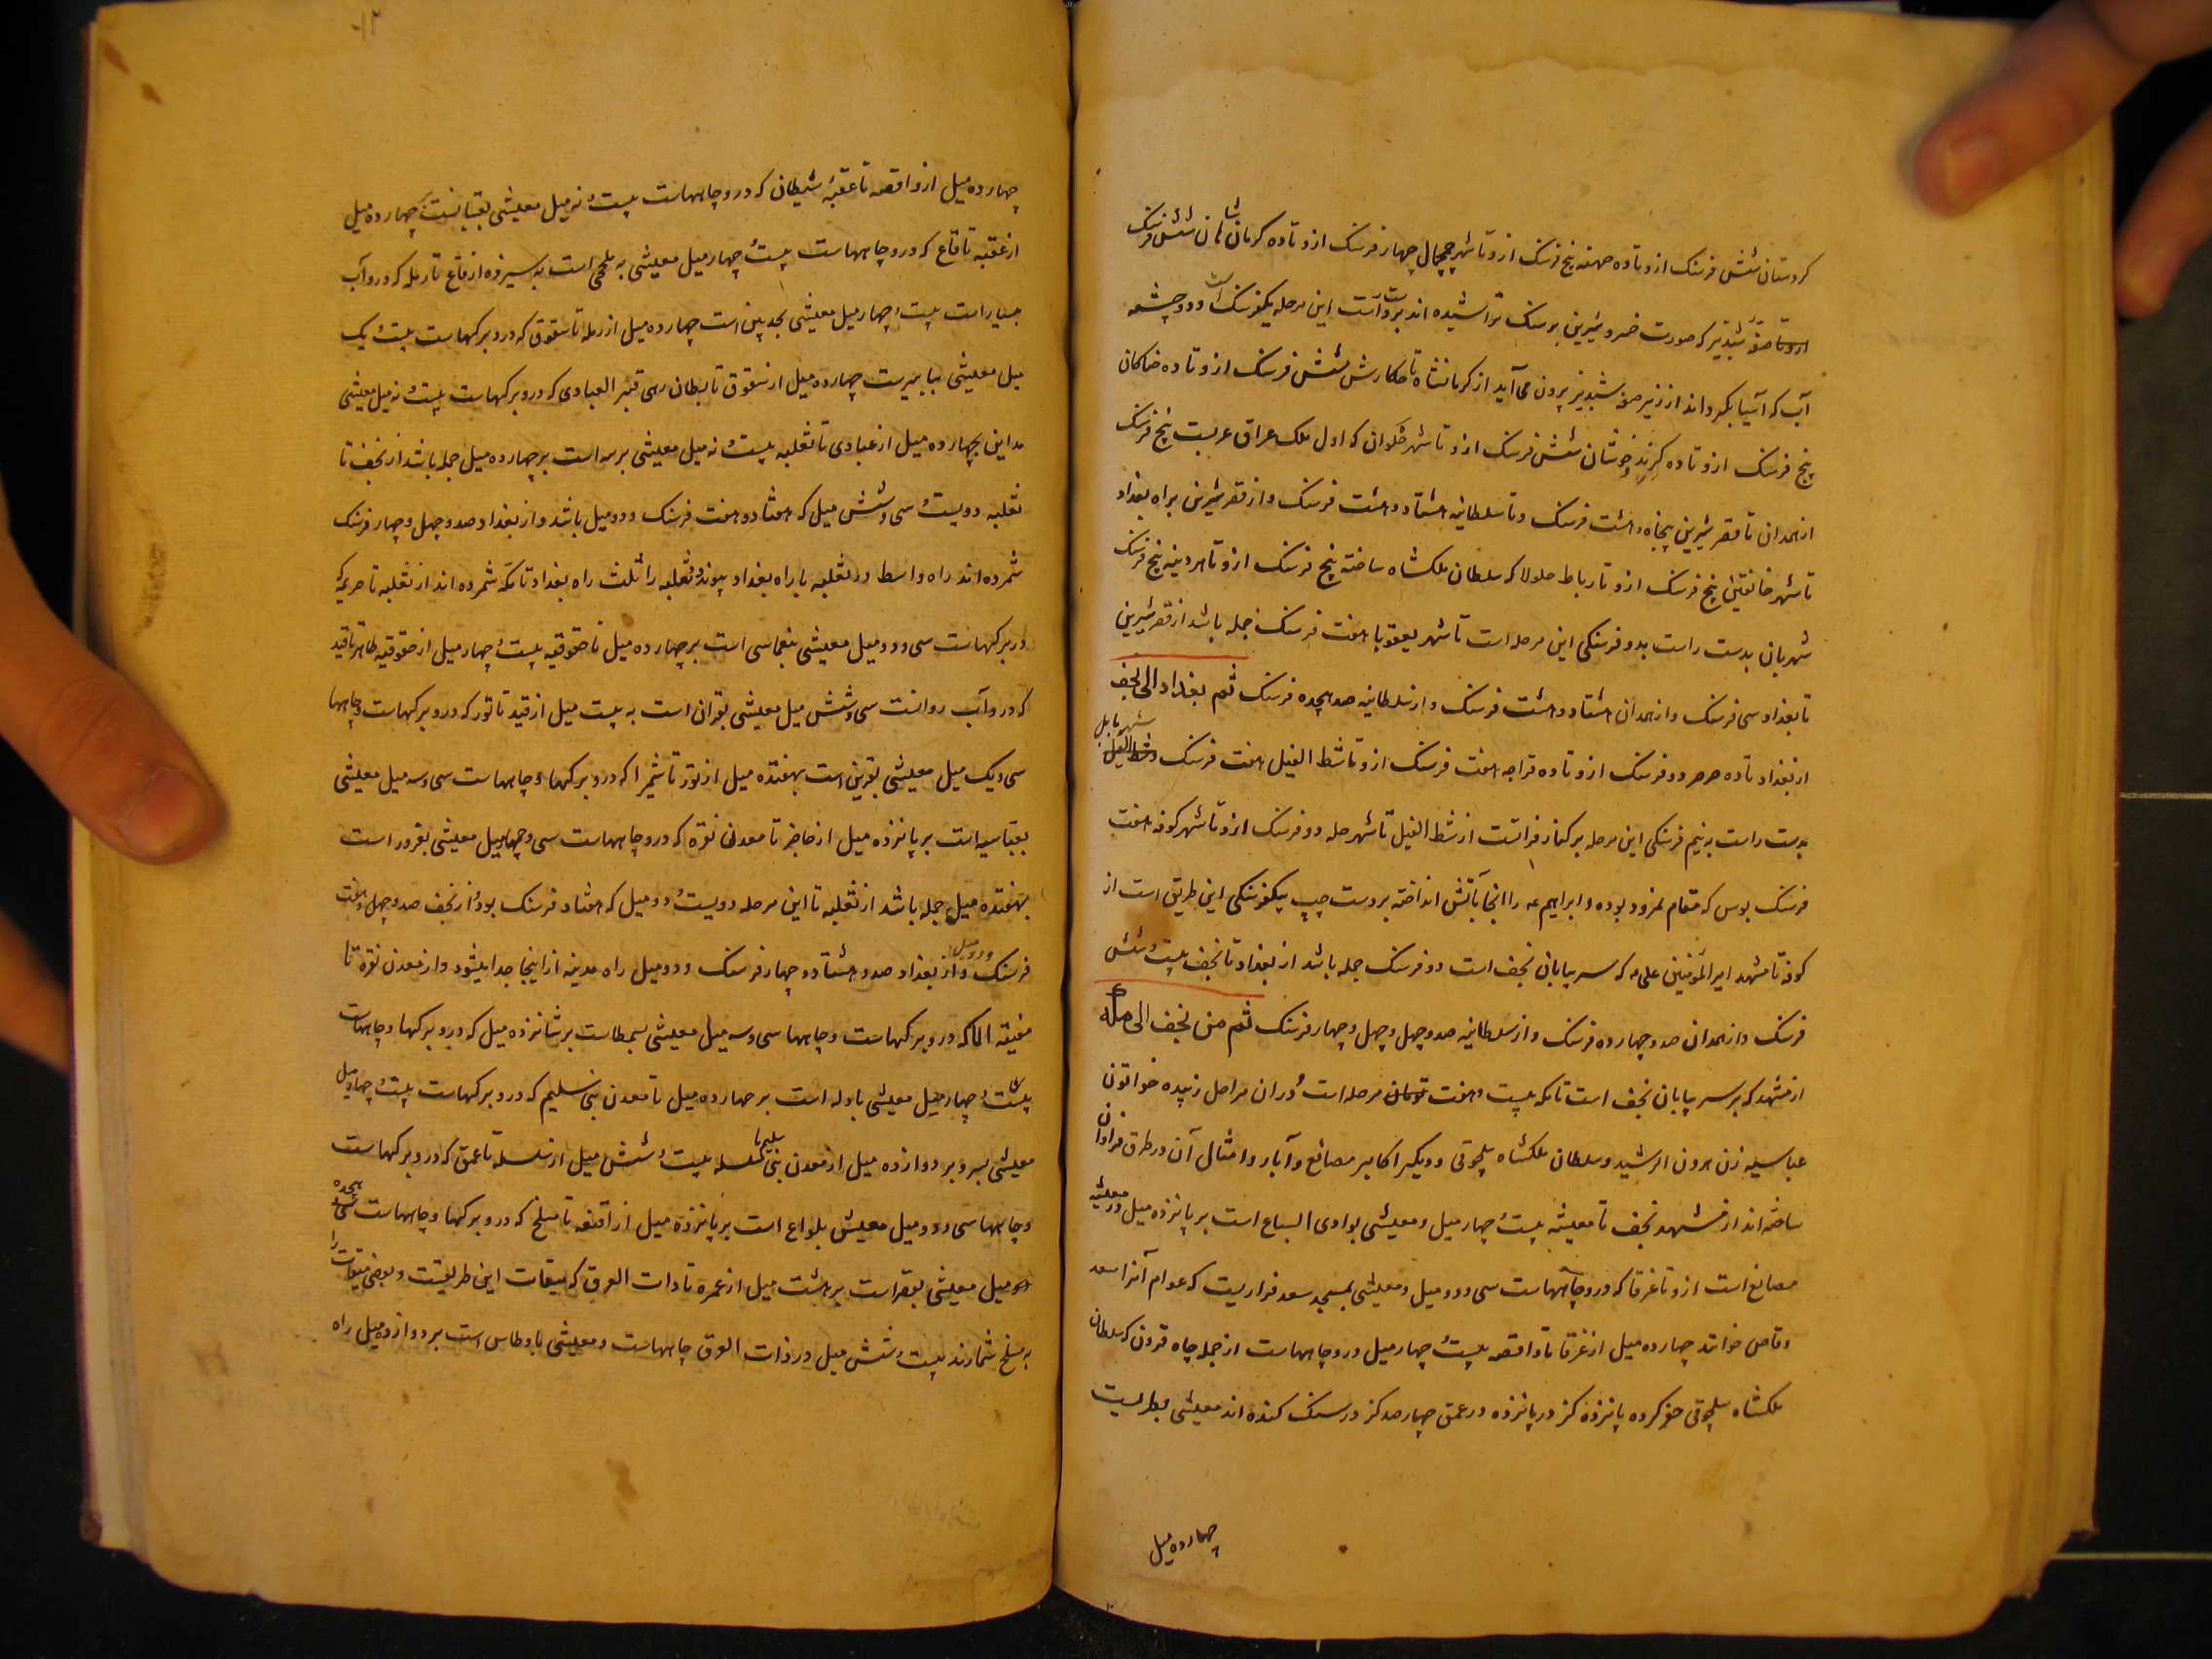 کردستان شش فرسنک ازو تا ده صهنه پنج فرسنک ازو تا شهر چمچمال چهار فرسنک ازو تا ده کرمانشاهان شش فرسنک
ازو تا صفه شبدیز که صورت خسرو شیرین بر سنک تراشیده اند بر دست راست این مرحله بیکفرسنک است و دو چشمه
آب که آسیا بکرداند از زیر صفه شبدیز برون می آید از کرمانشاه تا حکارش شش فرسنک ازو تا ده خماکان
پنج فرسنک ازو تا ده کرند و خوشان شش فرسنک ازو تا شهر حلوان که اول ملک عراق عربست پنج فرسنک
از همدان تا قصر شیرین پنجاه و هشت فرسنک و تا سلطانیه هشتاد و هشت فرسنک و از قصر شیرین براه بغداد
تا شهر خانقین پنج فرسنک ازو تا رباط حلولا که سلطان ملکشاه ساخته پنج فرسنک ازو تا هرونیه پنج فرسنک
شهربان بدست راست بدو فرسنکی این مرحله است تا شهر یعقوبا هفت فرسنک جمله باشد از قصر شیرین
تا بغداد سی فرسنک و از همدان هشتاد و هشت فرسنک و از سلطانیه صد و هیجده فرسنک ثم بغداد الی نجف
از بغداد تا ده صرصر دو فرسنک ازو تا ده قراجه هفت فرسنک ازو تا شط الفیل هفت فرسنک و شط الفیل شهر بابل
بدست راست به نیم فرسنکی این مرحله بر کنار فراتست از شط الفیل تا شهر حله دو فرسنک ازو تا شهر کوفه هفت
فرسنک بوس که مقام نمرود بوده و ابراهیم عه را آنجا بآتش انداخته بر دست چپ بیکفرسنکی این طریق است از
کوفه تا مشهد امیر المؤمنین علی عه که سر بیابان نجف است دو فرسنک جمله باشد از بغداد تا نجف بیست و شش
فرسنک و از همدان صد و چهارده فرسنک و از سلطانیه صد و چهل و چهار فرسنک ثم من نجف الی مکه
از مشهد که بر سر بیابان نجف است تا مکه بیست و هفت مرحله است و در ان مراحل زبیده خواتون
عباسیه زن هرون الرشید و سلطان ملکشاه سلجوقی و دیکر اکابر مصانع و آبار و امثال آن در طرق فراوان
ساخته اند از مشهد نجف تا مغیثه بیست و چهار میل و معیشی بوادی السباع است بر پانزده میل و در مغیثه
مصانع است ازو تا غرقا که درو چاهاست سی و دو میل و معیشی بمسجد سعد فزاریست که عوام آنرا سعد
وقاص خوانند چهارده میل از غرقا تا واقصه بیست و چهار میل و درو چاههاست از جمله چاه قرون که سلطان
ملکشاه سلجوقی حفر کرده پانزده کز در پانزده در عمق چهارصد کز در سنک کنده اند معیشی
چهارده میل
چهارده میل از واقصه تا عقبه شیطان که درو چاههاست بیست و نه میل معیشی بقبابست چهارده میل
از عقبه تا قاع که درو چاههاست بیست و چهار میل معیشی به است به سیزده از قاع تا رمله که درو آب
بسیار است بیست و چهار میل معیشی است چهارده میل از رمله تا شقوق که درو برکهاست بیست و یک
میل معیشی چهارده میل از شقوق تا بطان رهی قبر العبادی که درو برکهاست بیست و نه میل معیشی
بچهارده میل از عبادی تا ثعلبه بیست و نه میل معیشی است بر چهارده میل جمله باشد از نجف تا
ثعلبه دویست و سی و شش میل که هفتاد و هفت فرسنک و دو میل باشد و از بغداد صد و چهل و چهار فرسنک
شمرده اند راه واسط در ثعلبه با راه بغداد پیوندد و ثعلبه را ثلث راه بغداد تا مکه شمرده اند از ثعلبه تا خزیمیه که
درو برکهاست سی و دو میل معیشی است بر چهارده میل تا بیست و چهار میل از
که درو آب روانست سی و شش میل معیشی بقران است به بیست میل از قید تا تور که درو برکهاست و چاهها
سی و یک میل معیشی بقرین است بهفتده میل از تور تا سمیرا که درو برکهها و چاههاست سی و سه میل معیشی
است بر پانزده میل از حاجز تا معدن نقره که درو چاههاست سی و چهار میل معیشی بقرور است
بهفتده میل جمله باشد از ثعلبه تا این مرحله دویست و دو میل که هفتاد فرسنک بود و از نجف صد و چهل و هفت
فرسنک و دو میل و از بغداد صد و هشتاد و چهار فرسنک و دو میل راه مدینه از اینجا جدا میشود و از معدن نقره تا
که درو برکهاست و چاهها سی و سه میل معیشی بسمطاست بر شانزده میل که درو برکها و چاههاست
بیست و چهار میل معیشی باوله است بر چهارده میل تا معدن بنی سلیم که درو برکهاست بیست و چهار میل
معیشی بسرو بر دوازده میل از معدن بنی سلیم تا سلسله بیست و شش میل از سلسله تا عمق که درو برکهاست
و چاهها سی و دو میل معیشی است بر پانزده میل از تا مسلح که درو برکها و چاههاست هجده
میل معیشی بقصر است بر هشت میل از غمره تا ذات العرق که میقات این طریقست و بعضی میقات را
به مسلح شمارند بیست و شش میل و در ذات العرق چاههاست و معیشی باوطاس است بر دوازده میل راه